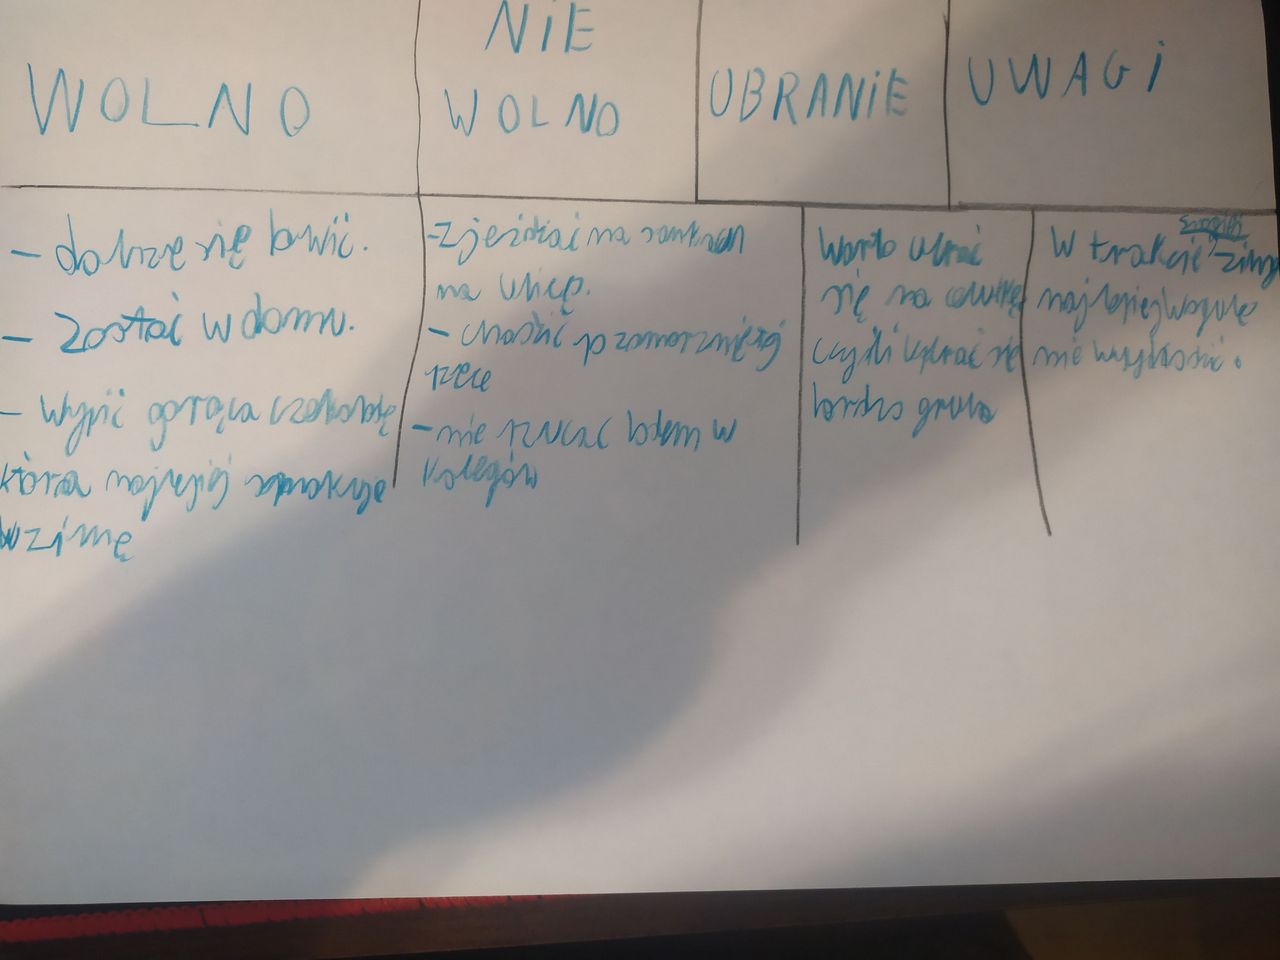 WOLNO
NIE
WOLNO
UBRANIE
UWAGI
- dobrze się bawić.
- Zostać w domu.
- Wypić gorąca czekoladę
która najlepiej smakuje
w zimę
- Zjeżdżać na sankach
na ulicę.
- chodzić p zamarzniętej
rzece
- nie rzucać lodem w
kolegów
Warto ubrać
się na cebulkę
czyli ubrać się
bardzo grubo
W trakcie zimy
najlepiej wogule
nie wychodzić.